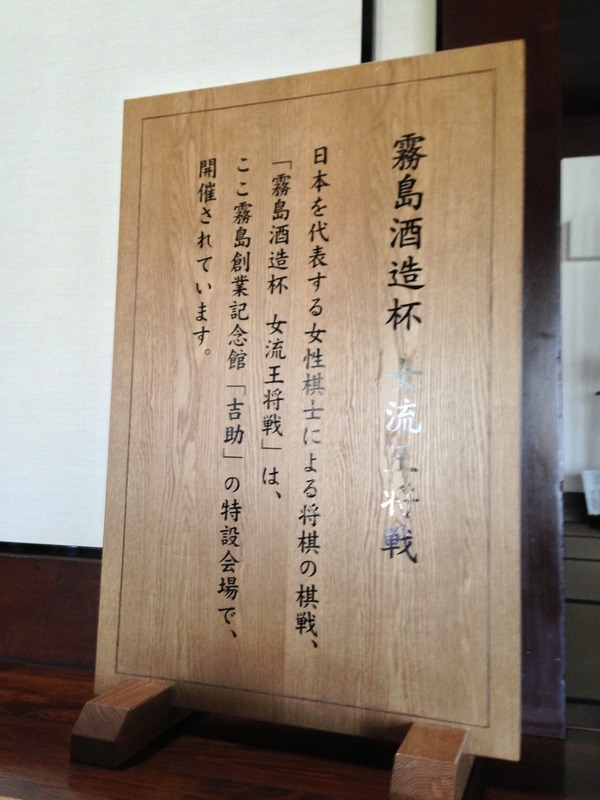 霧島酒造杯 女流王将戦
日本を代表する女性棋士による将棋の棋戦、
「霧島酒造杯 女流王将戦」は、
ここ霧島創業記念館「吉助」の特設会場で、
開催されています。